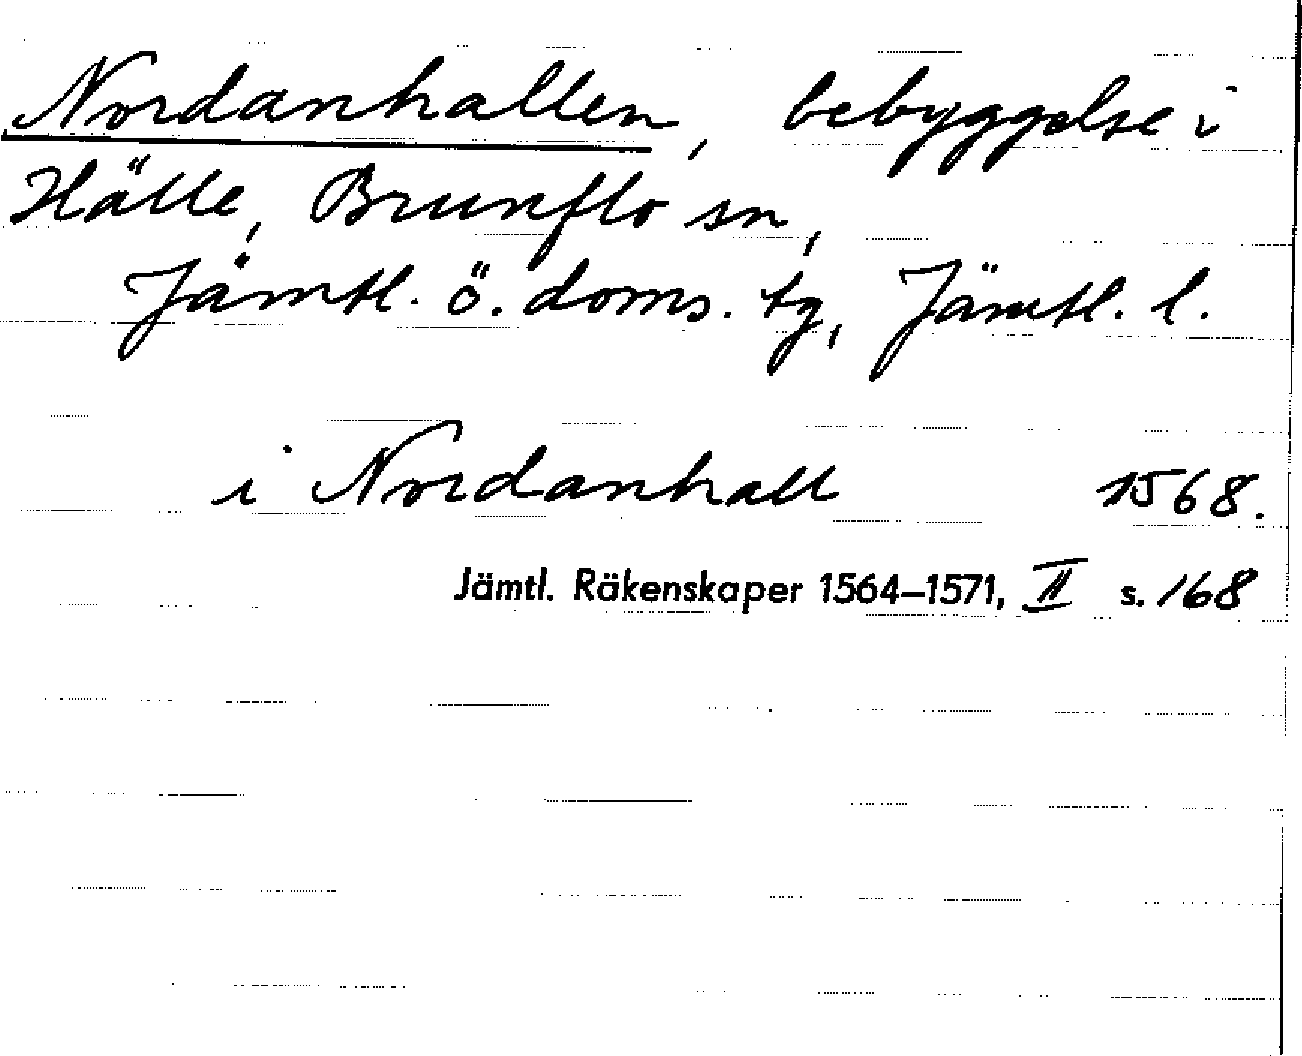 Nordanhallen, bebyggelse i
Hälle, Brunflo sn,
Jämtl. ö. doms. tg, Jämtl. l.
i Nordanhall 1568.
Jämtl. Räkenskaper 1564–1571, II s. 168